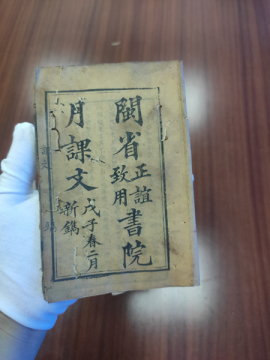 閩省正誼致用書院
月課文
戊子春二月
新鐫